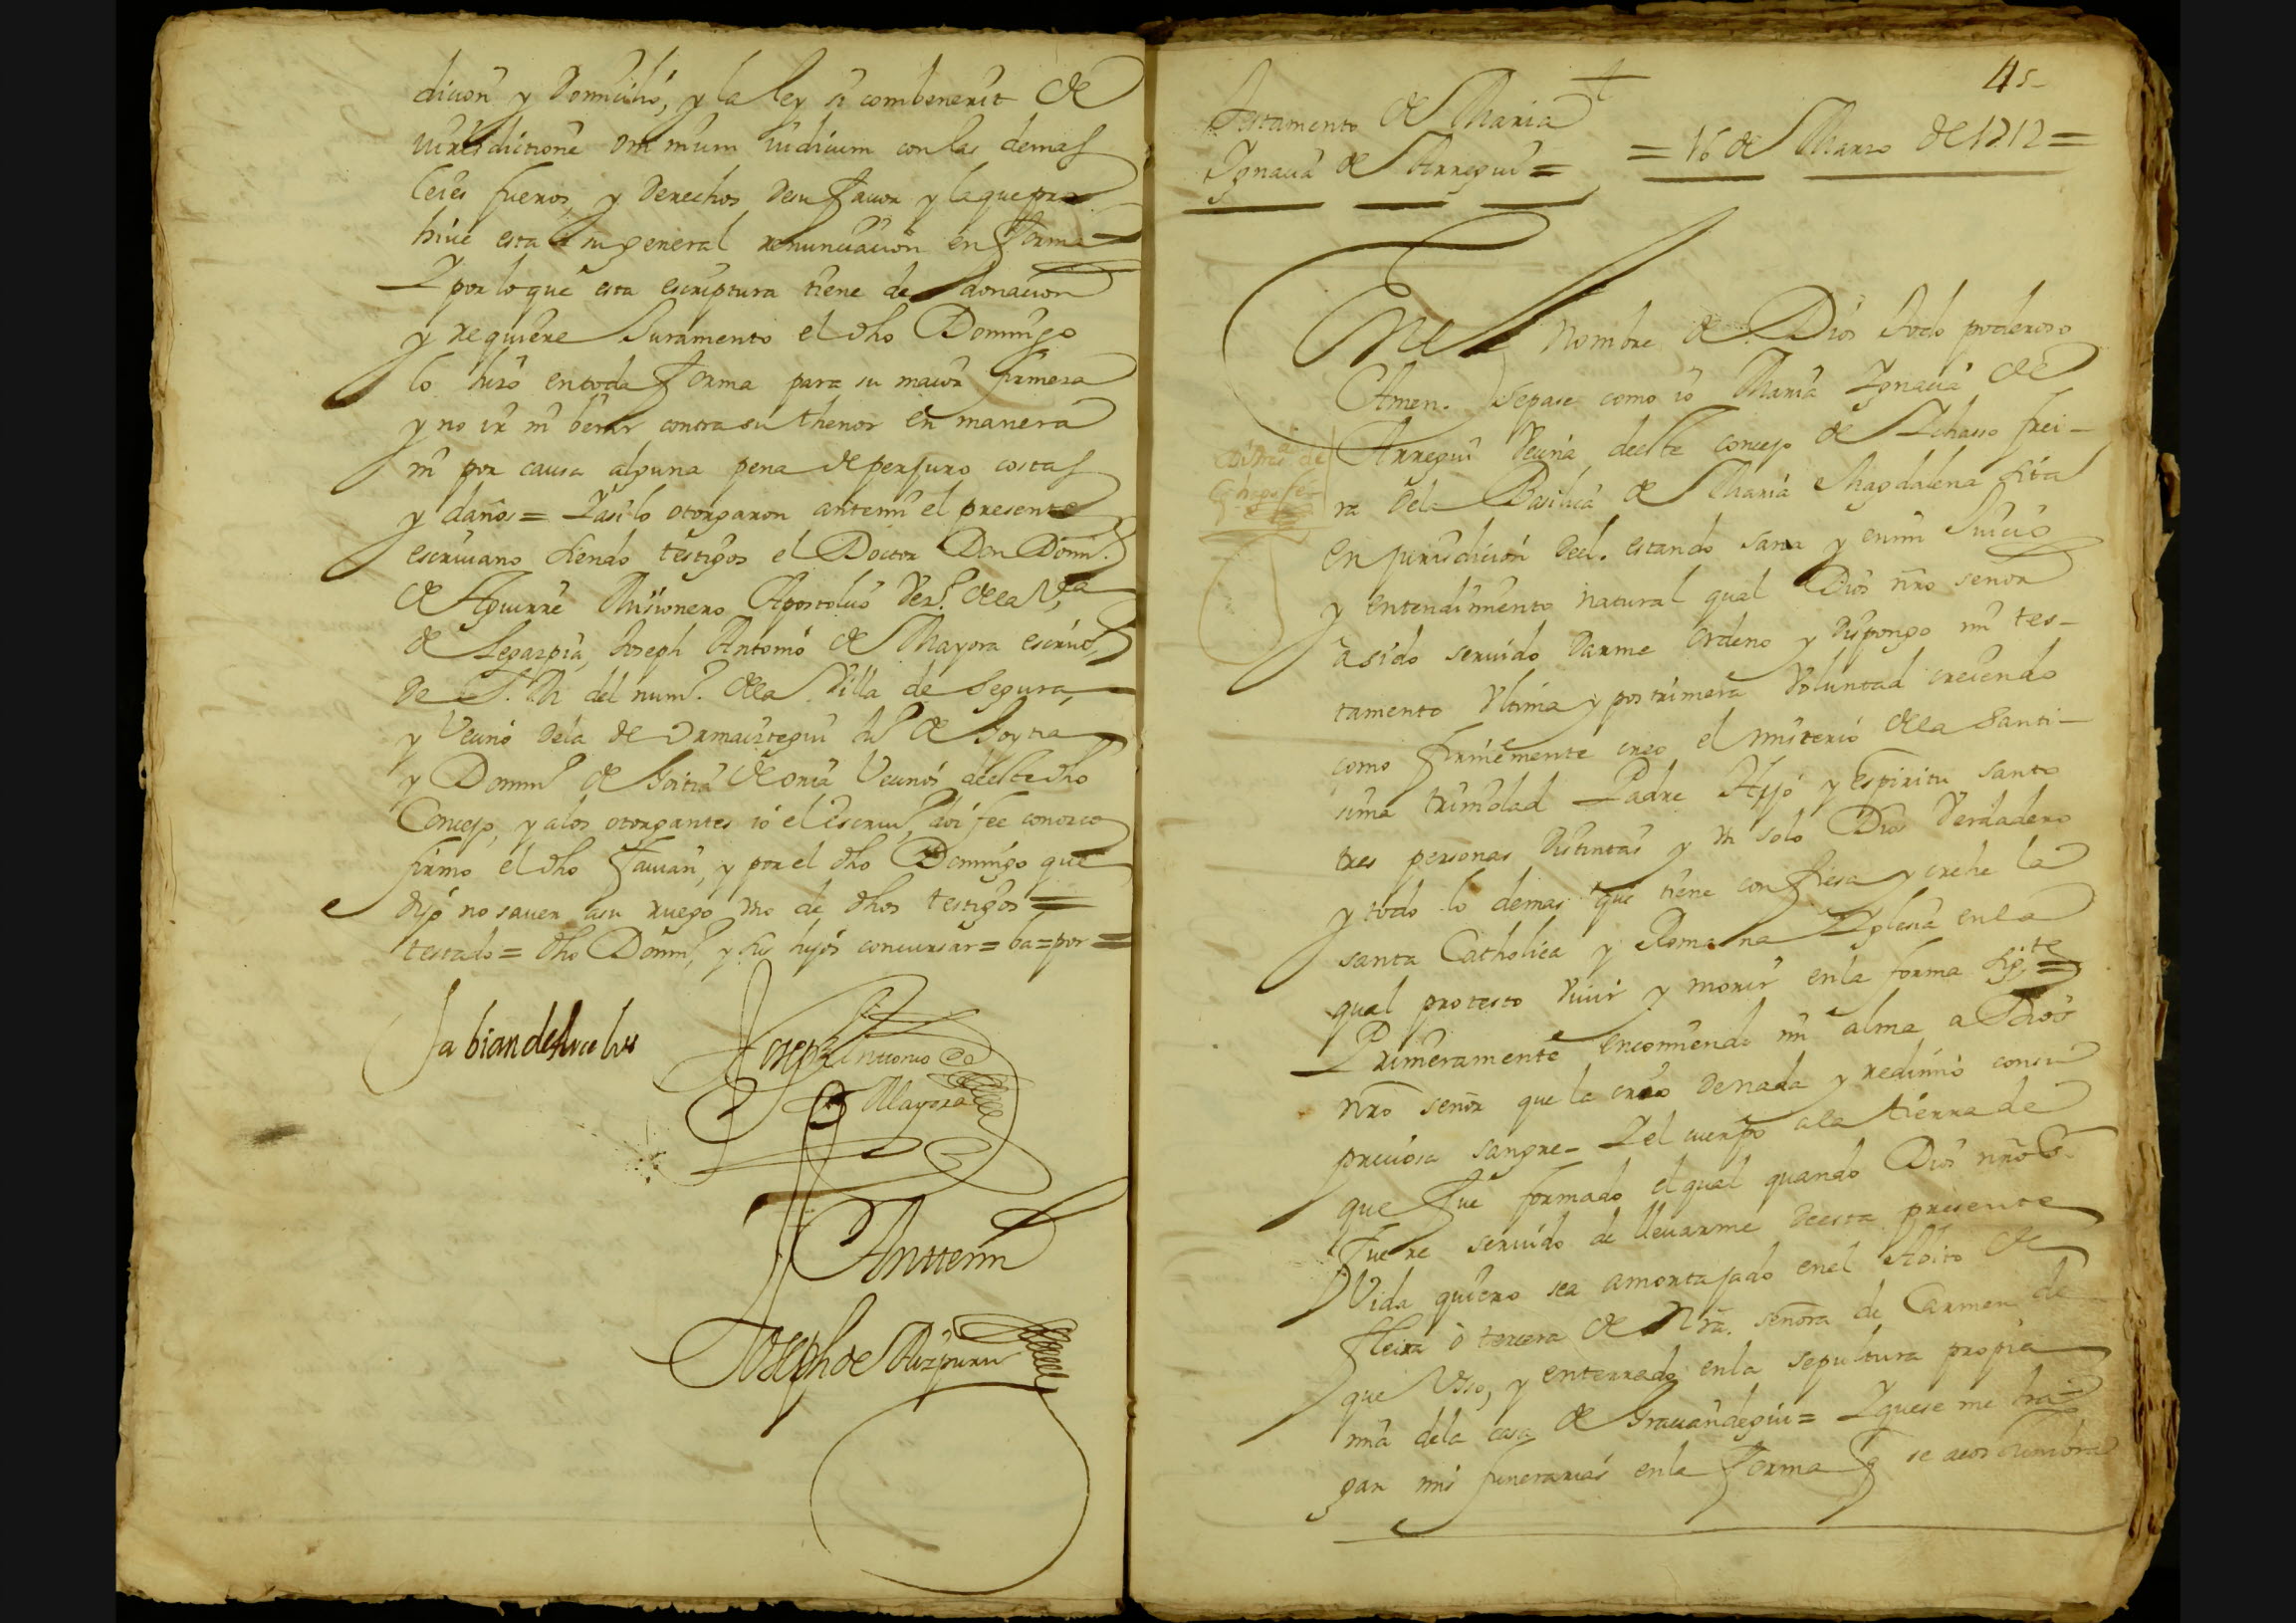 dicion y Domicilio, y la ley si combenerit de
iurisdictione omnium iudicum con las demas
leies fueros, y derechos desu fauor y laque pro
hiue esta su general renunciacion en forma
Y por lo que esta escriptura tiene de donacion
y requiere Juramento el dho Domingo
lo hizo entoda forma para su maior firmeza
y no ir ni benir contra su thenor en manera
ni por causa alguna pena de perjuro costas
y daños = Y asi lo otorgaron antemi el presente
escriuano siendo testigos el Doctor Don Domin.º
de Aguirre Misionero Apostolico Ver.º dela V.ª
de Legazpia, Joseph Antonio de Mayora escriu.º
de S. M. del num.º dela Villa de Segura,
y Vecino dela de Ormaiztegui de Goytia
y Domin.º de Goitia de oria Vecinos deeste dho
Concejo, y alos otorgantes io el Escriu.º doi fee conozco
firmo el dho Fauian, y por el dho Domingo que
dijo no sauer asu ruego vno de dhos testigos =
testado = dho Domin.º y sus hijos concursar = ba = por =
Fabian de
Joseph Antonio de
Mayora
Anttemi
Joseph de Aizpuru
45
Testamento de Maria
Ygnacia de Arregui =
= 16 de Marzo de 1712 =
Enel Nombre de Dios todo poderoso
Amen. Sepase como io Maria Ygnacia de
Arregui Vecina deeste concejo de Ychasso frei-
ra dela Basilica de Maria Magdalena sita
en jurisdicion deel. estando sana y enmi Juicio
y entendimiento natural qual Dios nro señor
a sido seruido darme ordeno y dispongo mi tes-
tamento vltima y postrimera voluntad creiendo
como firmemente creo el misterio dela santi-
sima trinidad Padre Hijo y Espiritu santo
tres personas distintas y vn solo Dios Verdadero
y todo lo demas que tiene confiesa y crehe la
santa Catholica y Romana Yglesia enla
qual protesto viuir y morir enla forma sig.te =
Primeramente encomiendo mi alma a Dios
nro señor que la crio de nada y redimio consu
preciosa sangre = Y el cuerpo ala tierra de
que fue formado el qual quando Dios nro S.r
fuere seruido de lleuarme deesta presente
Vida quiero sea amortajado enel Abito de
fleira o tercera de Nra. señora de Carmen de
que Vso, y enterrado enla sepultura propia
mia dela casa de Grauandegui = Y que se me ha-
gan mis funerarias enla forma q se acostumbra